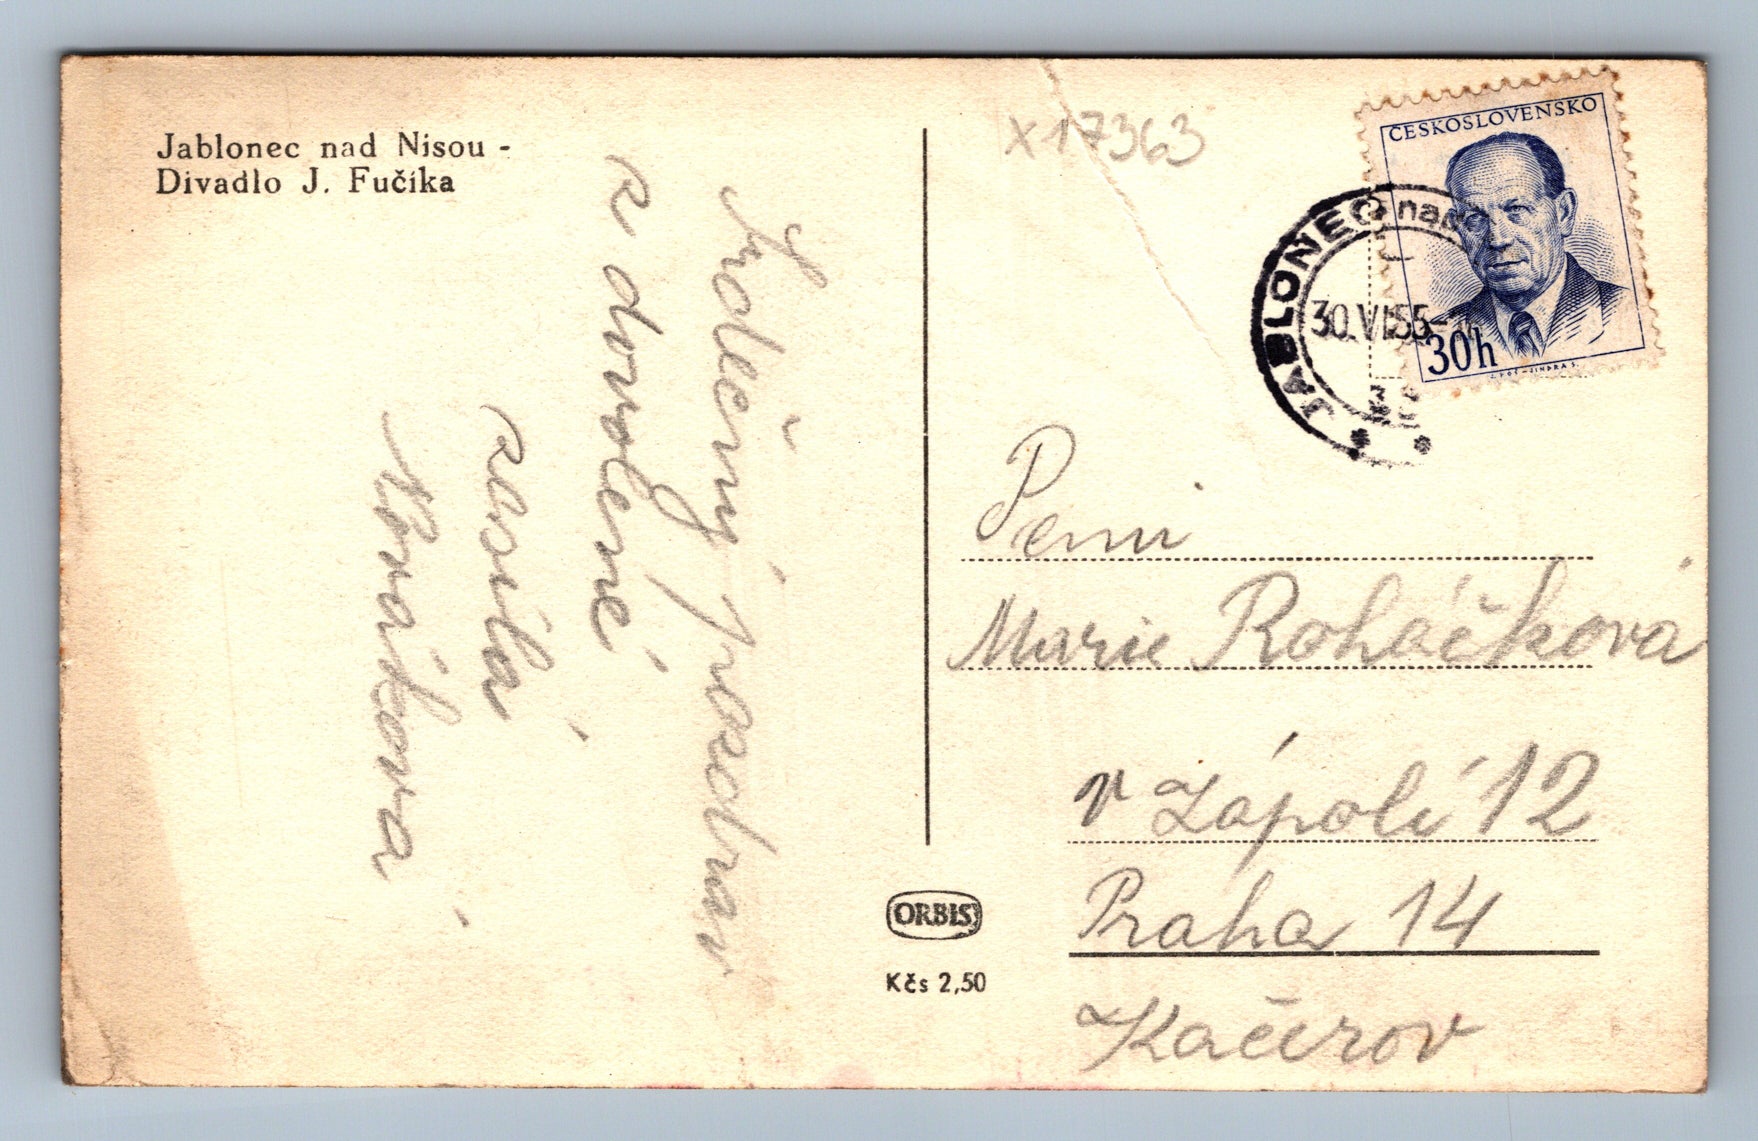 Jablonec nad Nisou -
Divadlo J. Fučíka
Srdečný pozdrav
z dovolené
zasílá
Nováková
x17363
ČESKOSLOVENSKO
30h
JABLONEC nad
30.VI.55-
Pení
Marie Roháčková
v Zápolí 12
Praha 14
Kačerov
ORBIS
Kčs 2,50